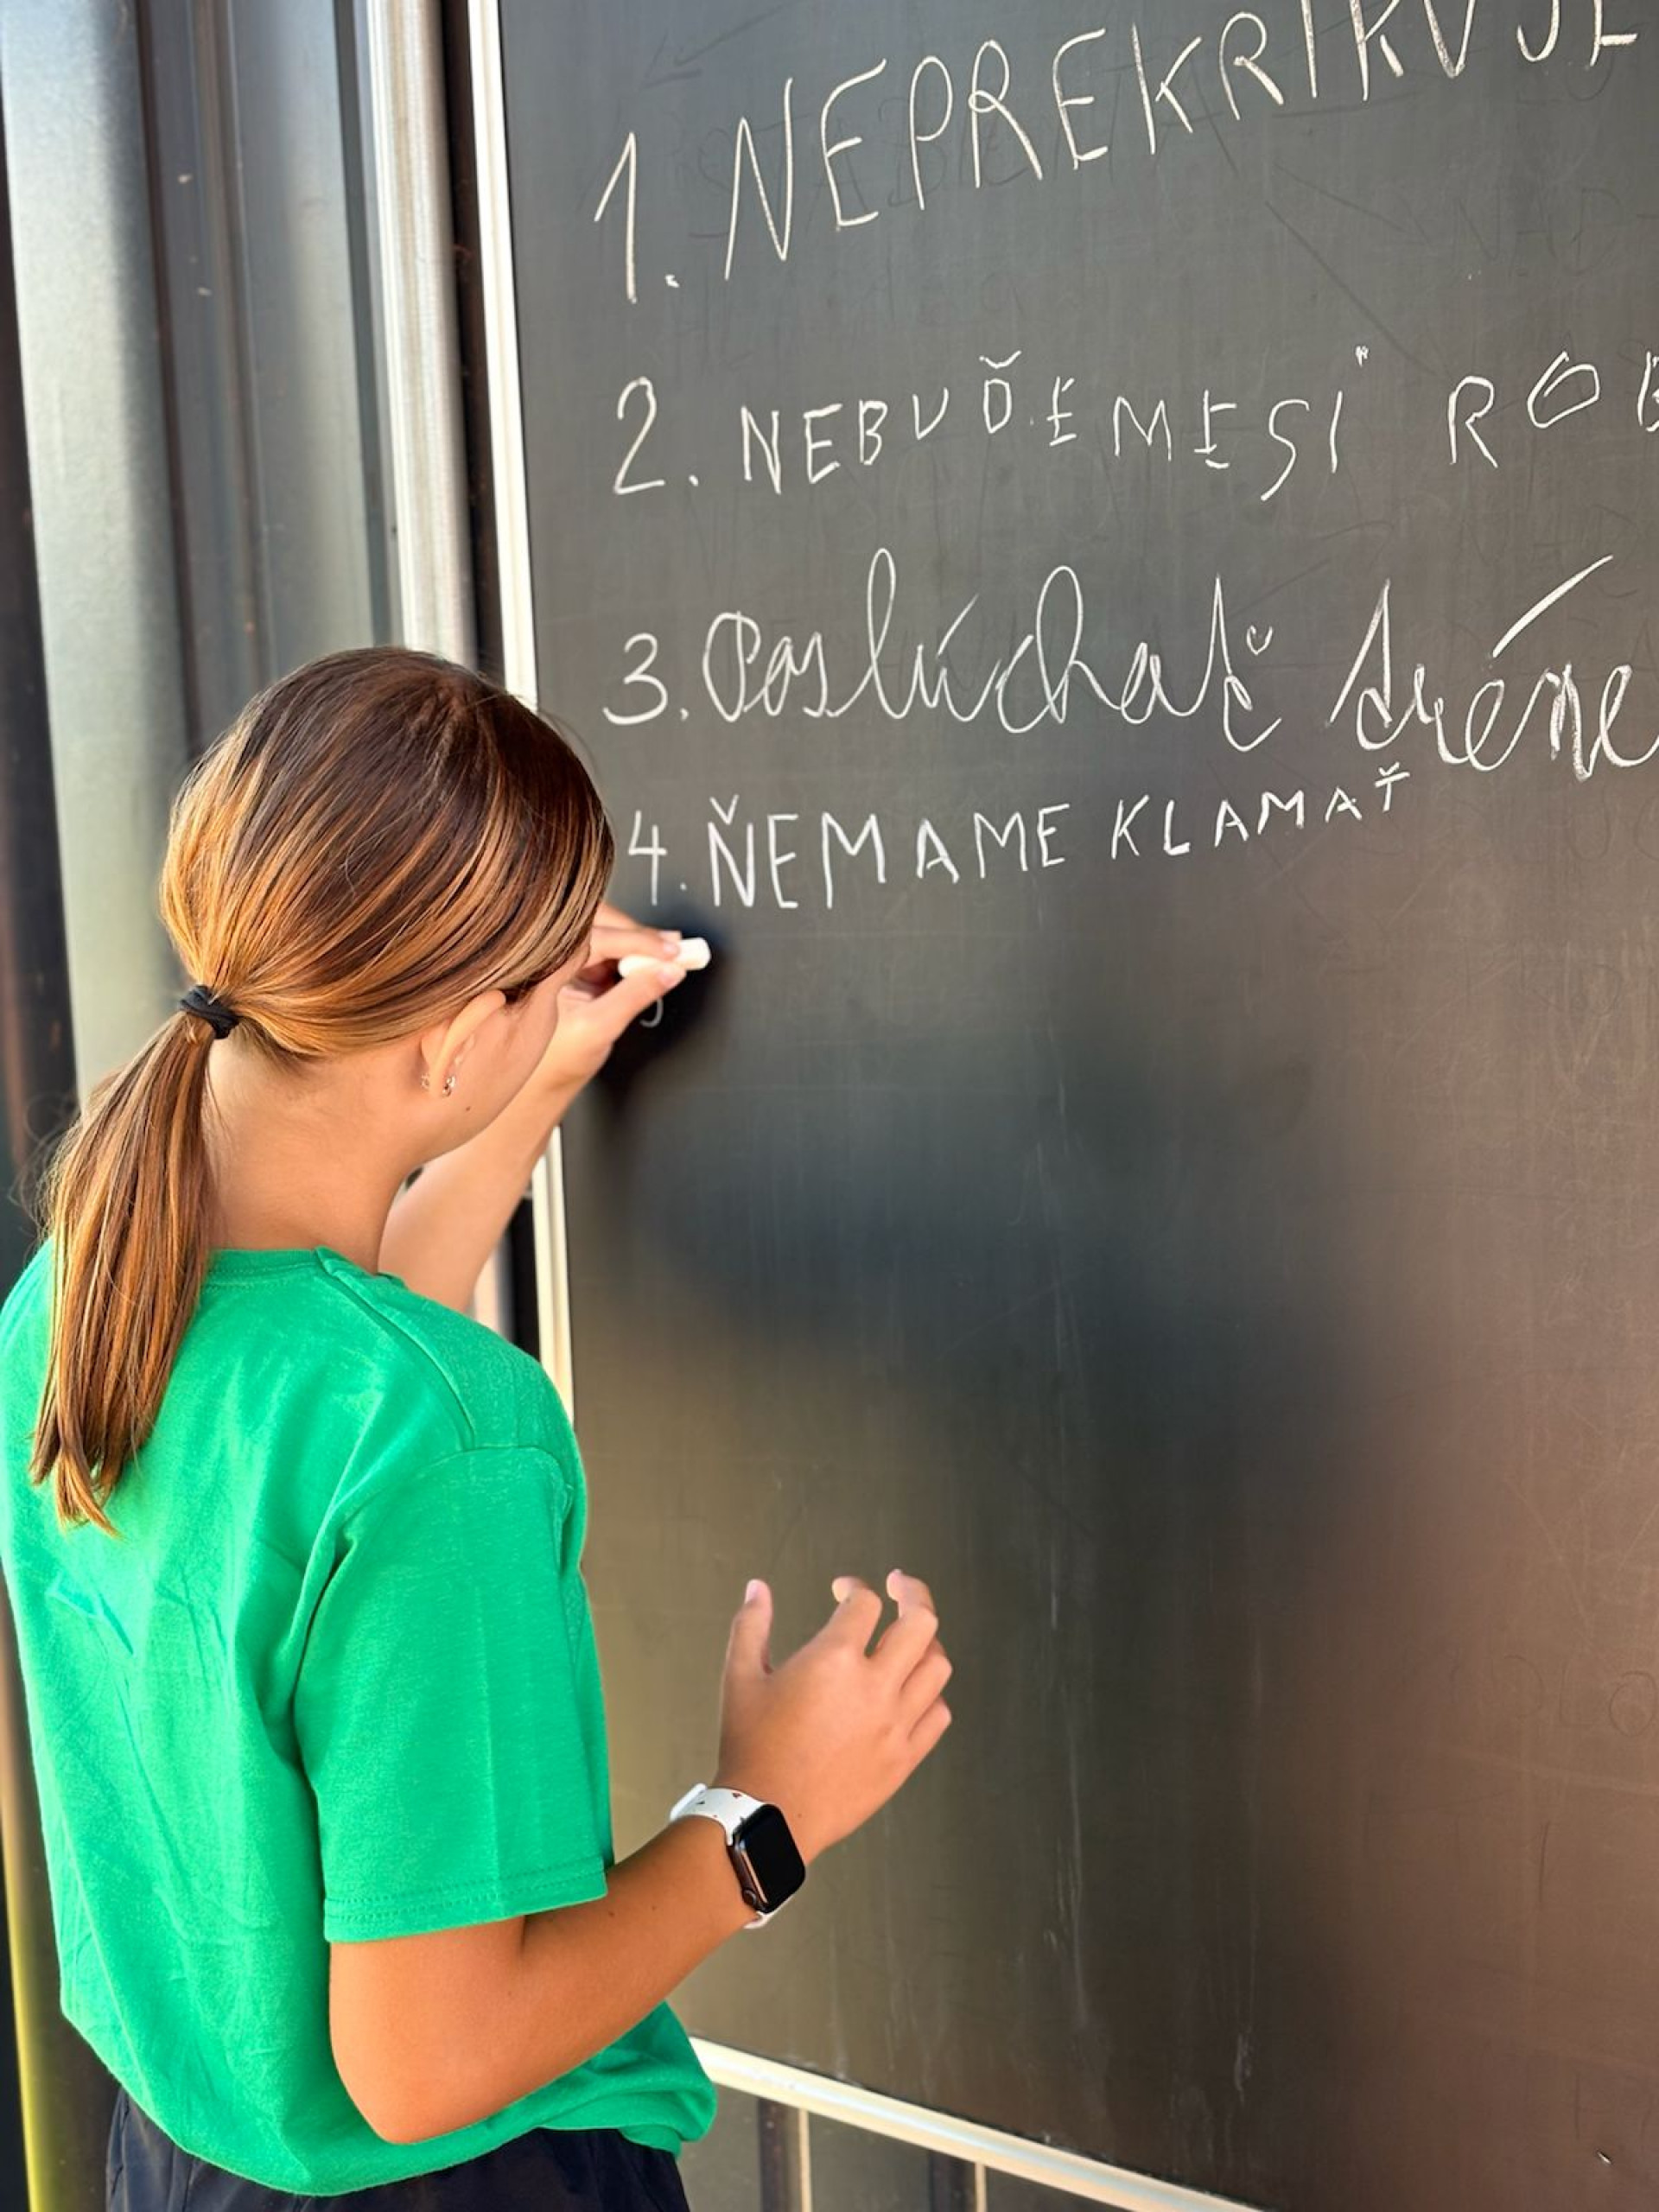 1. NEPREKRIKUJE
2. NEBUĎEMESI ROB
3. Poslúchať tréne
4. ŇEMAME KLAMAŤ
5